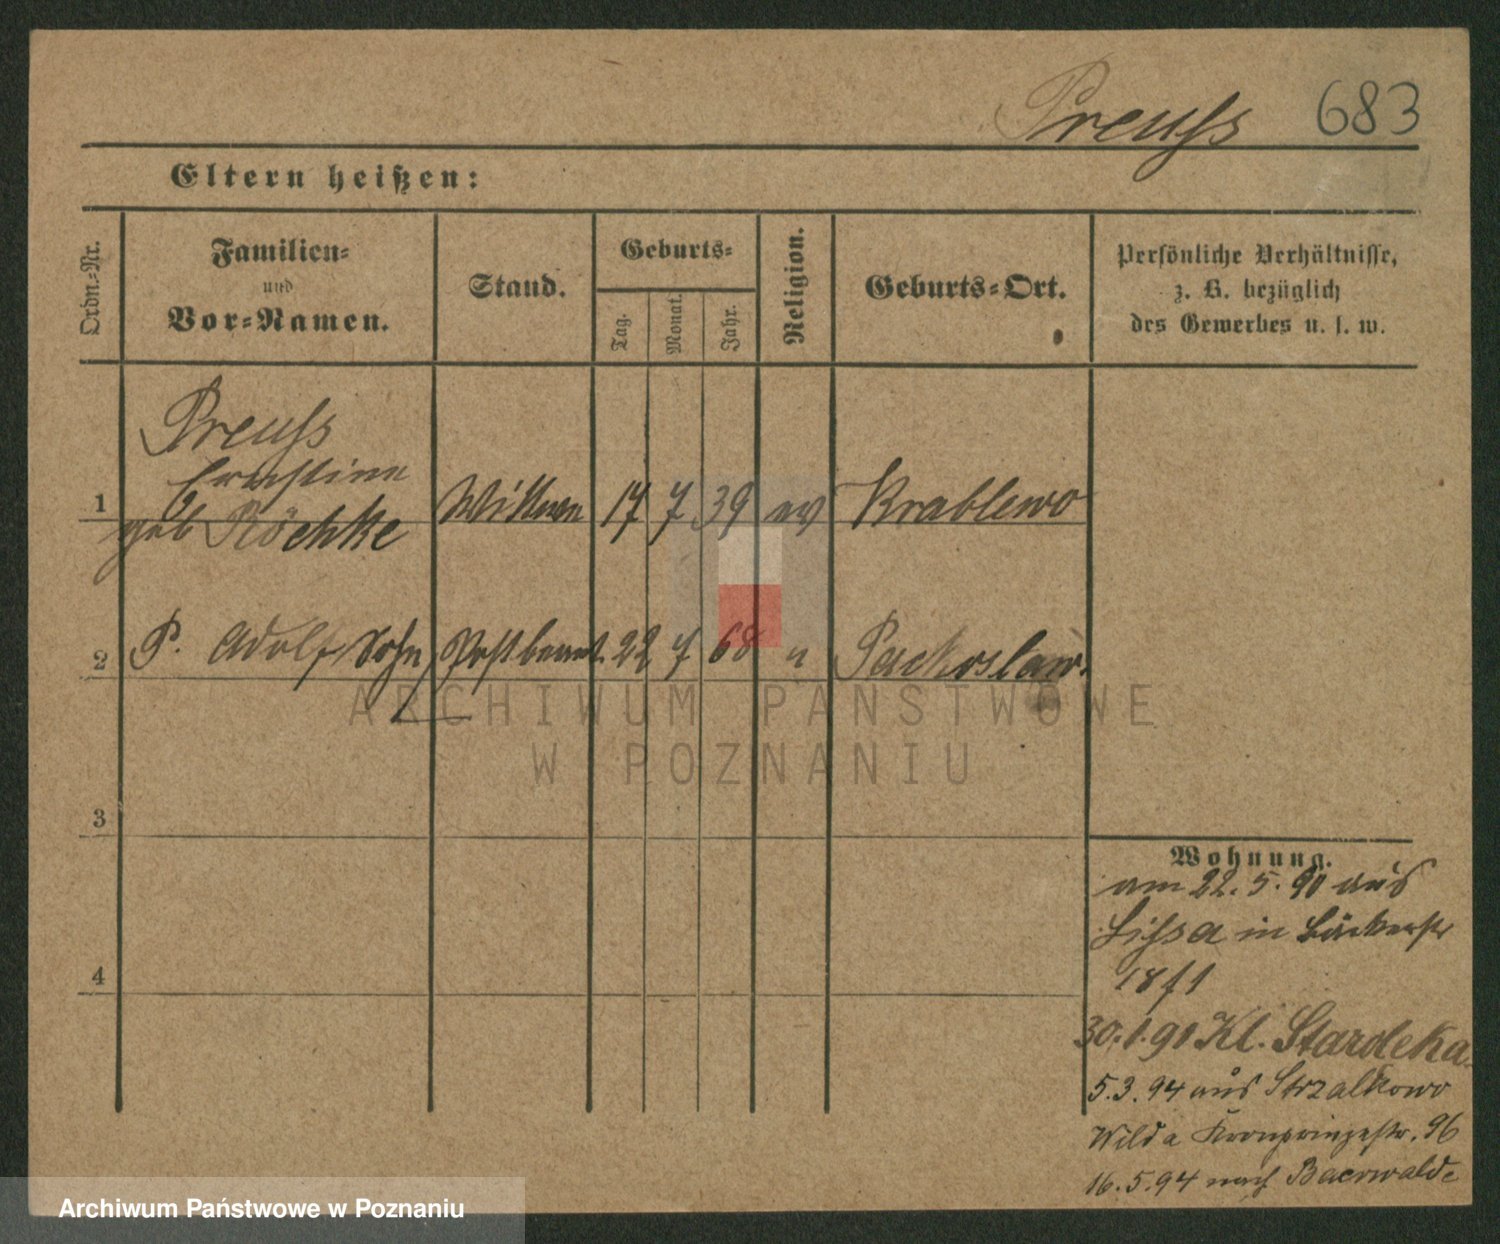 Preuſs 683
Eltern heißen:
Ordn.-Nr.
Familien-
und
Vor-Namen.
Stand.
Geburts-
Tag.
Monat.
Jahr.
Religion.
Geburts-Ort.
Persönliche Verhältnisse,
z. B. bezüglich
des Gewerbes u. s. w.
Preuſs
Ernestine
1 geb Röchke Wittwe 17 7 39 ev Krablewo
2 P. Adolf Sohn Postbeamt. 22 7 68 " Packoslaw.
3
4
Wohnung.
am 22.5.90 aus
Liſsa in Bäckerstr
18 f 1
30.1.91 Kl. Staroleka
5.3.94 aus Strzalkowo
Wilda Kronprinzestr. 96
16.5.94 nach Baerwalde
ARCHIWUM PAŃSTWOWE
W POZNANIU
Archiwum Państwowe w Poznaniu